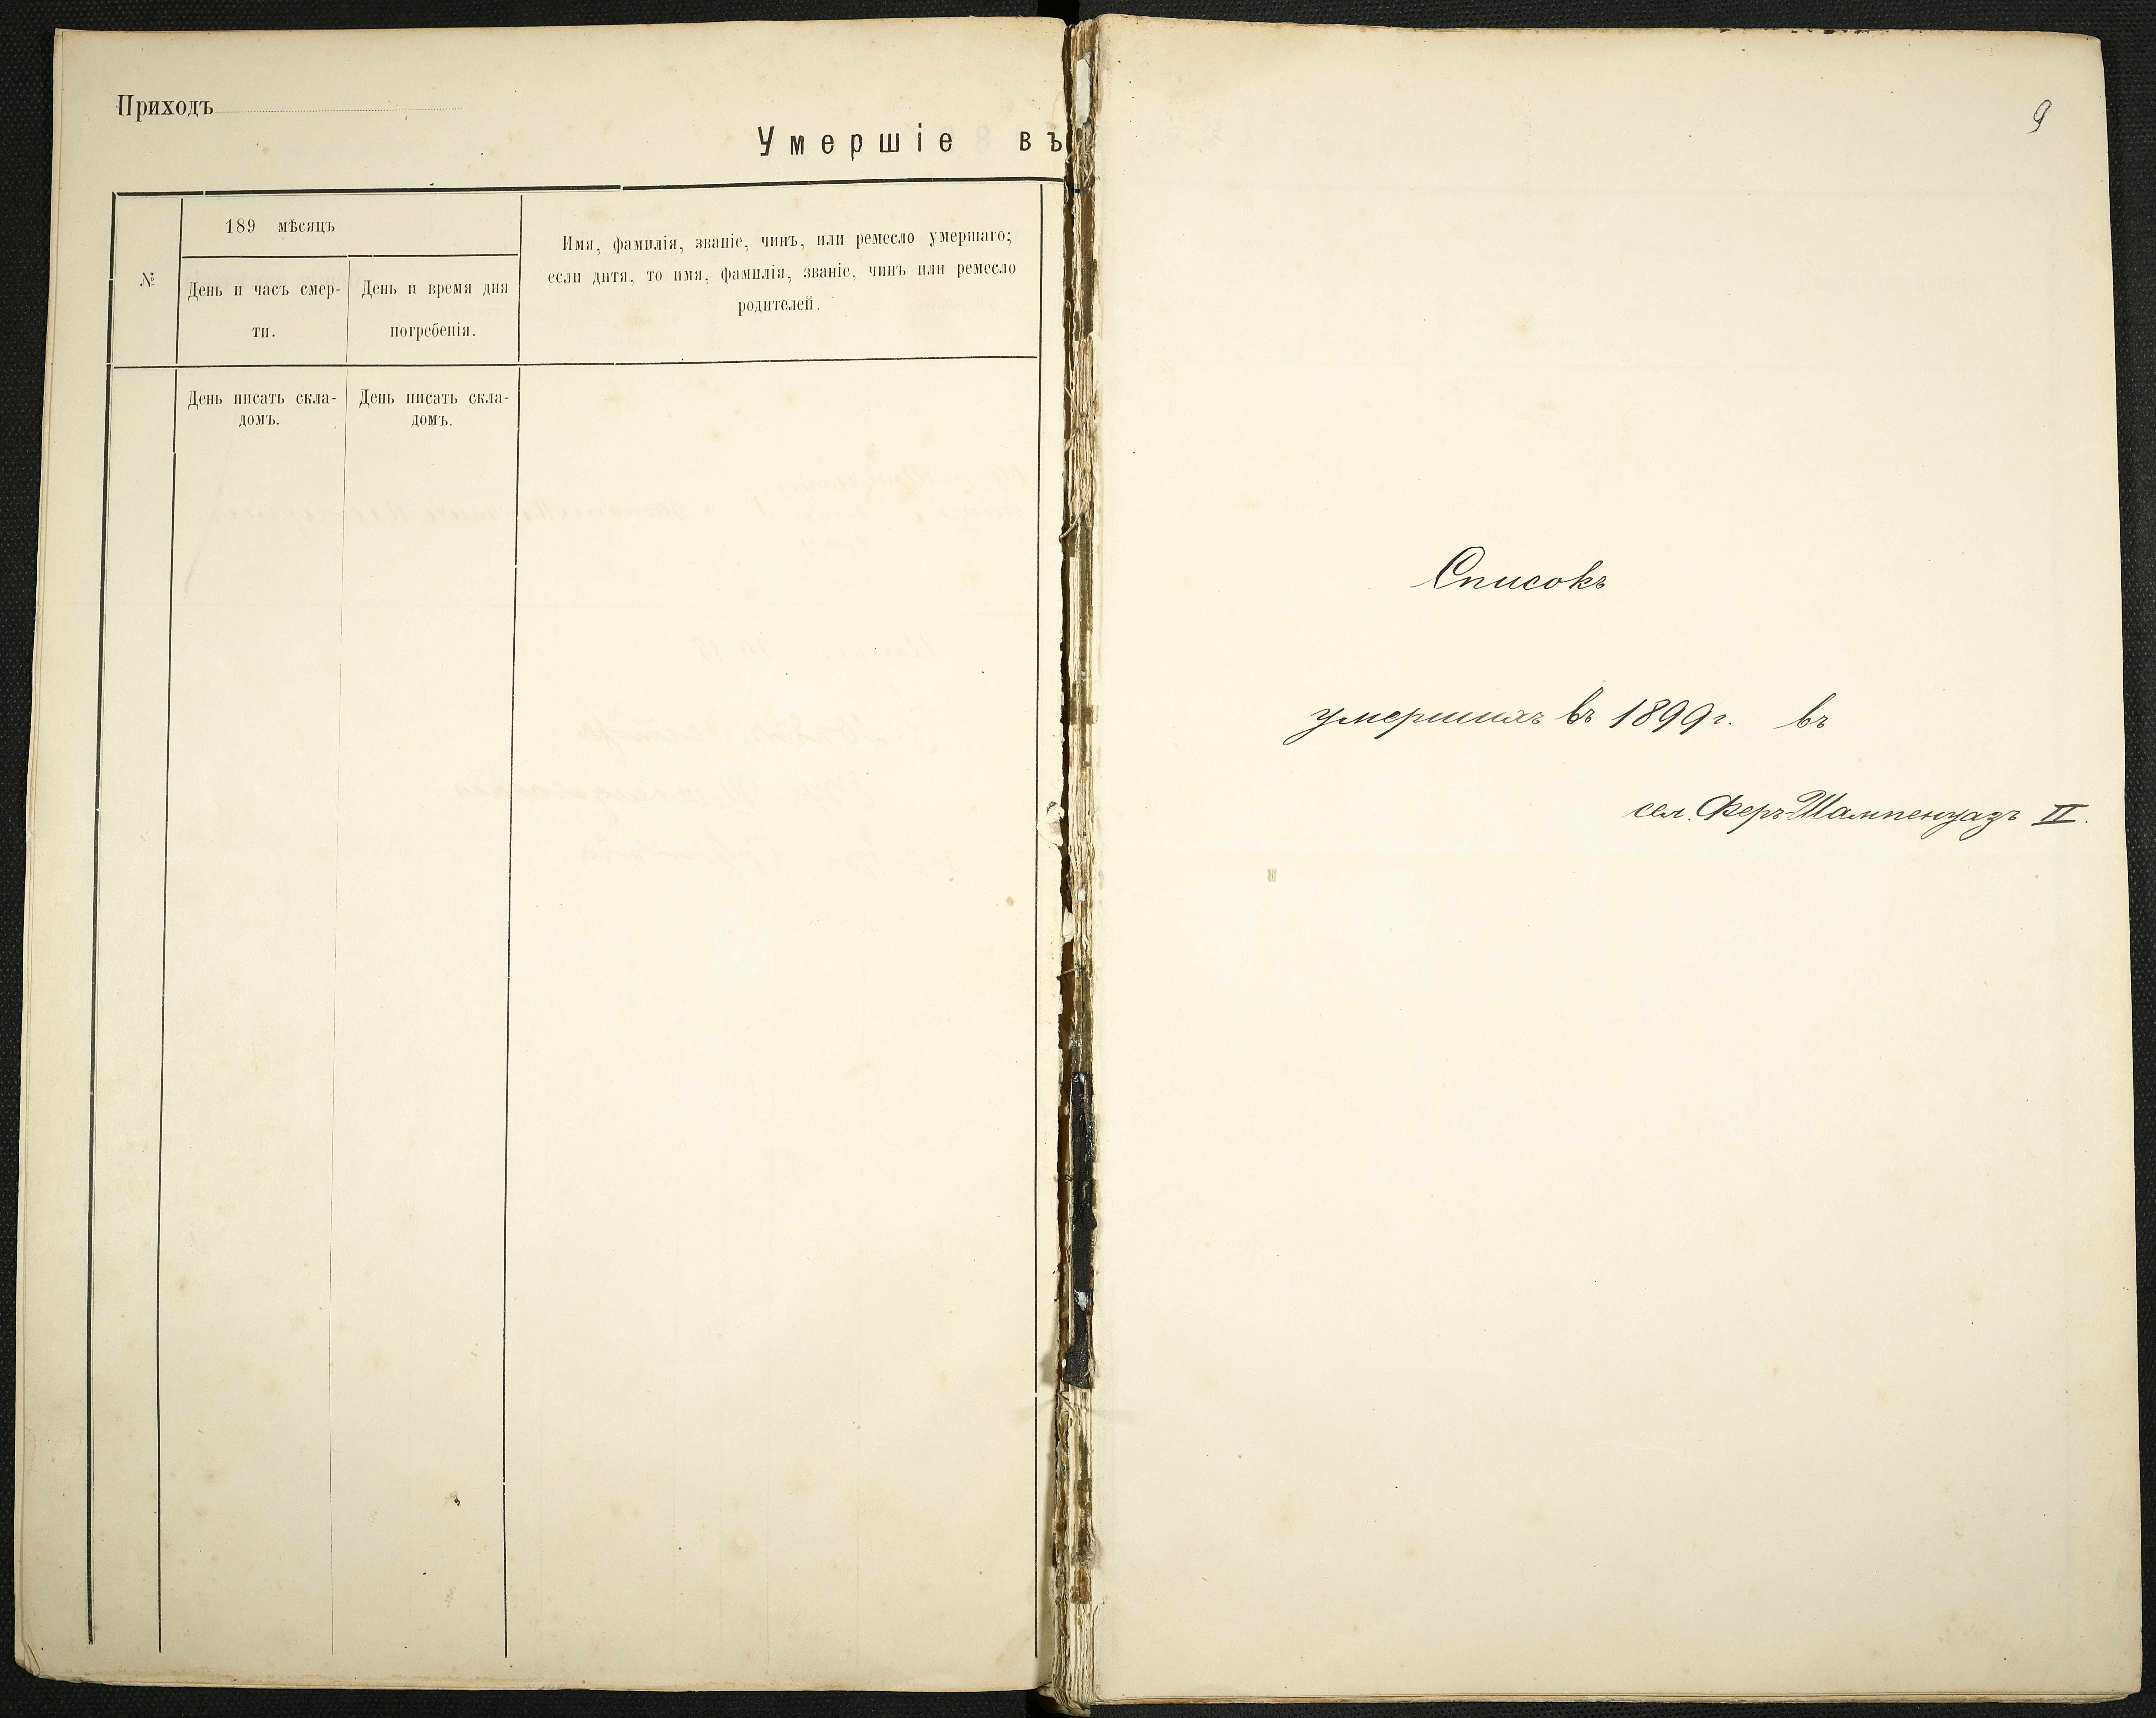 Приходъ
Умершіе въ
№
189 мѣсяцъ
День и часъ смер-
ти.
День и время дня
погребенія.
Имя, фамилія, званіе, чинъ, или ремесло умершаго;
если дитя, то имя, фамилія, званіе, чинъ или ремесло
родителей.
День писать скла-
домъ.
День писать скла-
домъ.
9
Списокъ
умершихъ въ 1899 г. въ
сел. Феръ-Шампенуазъ II.